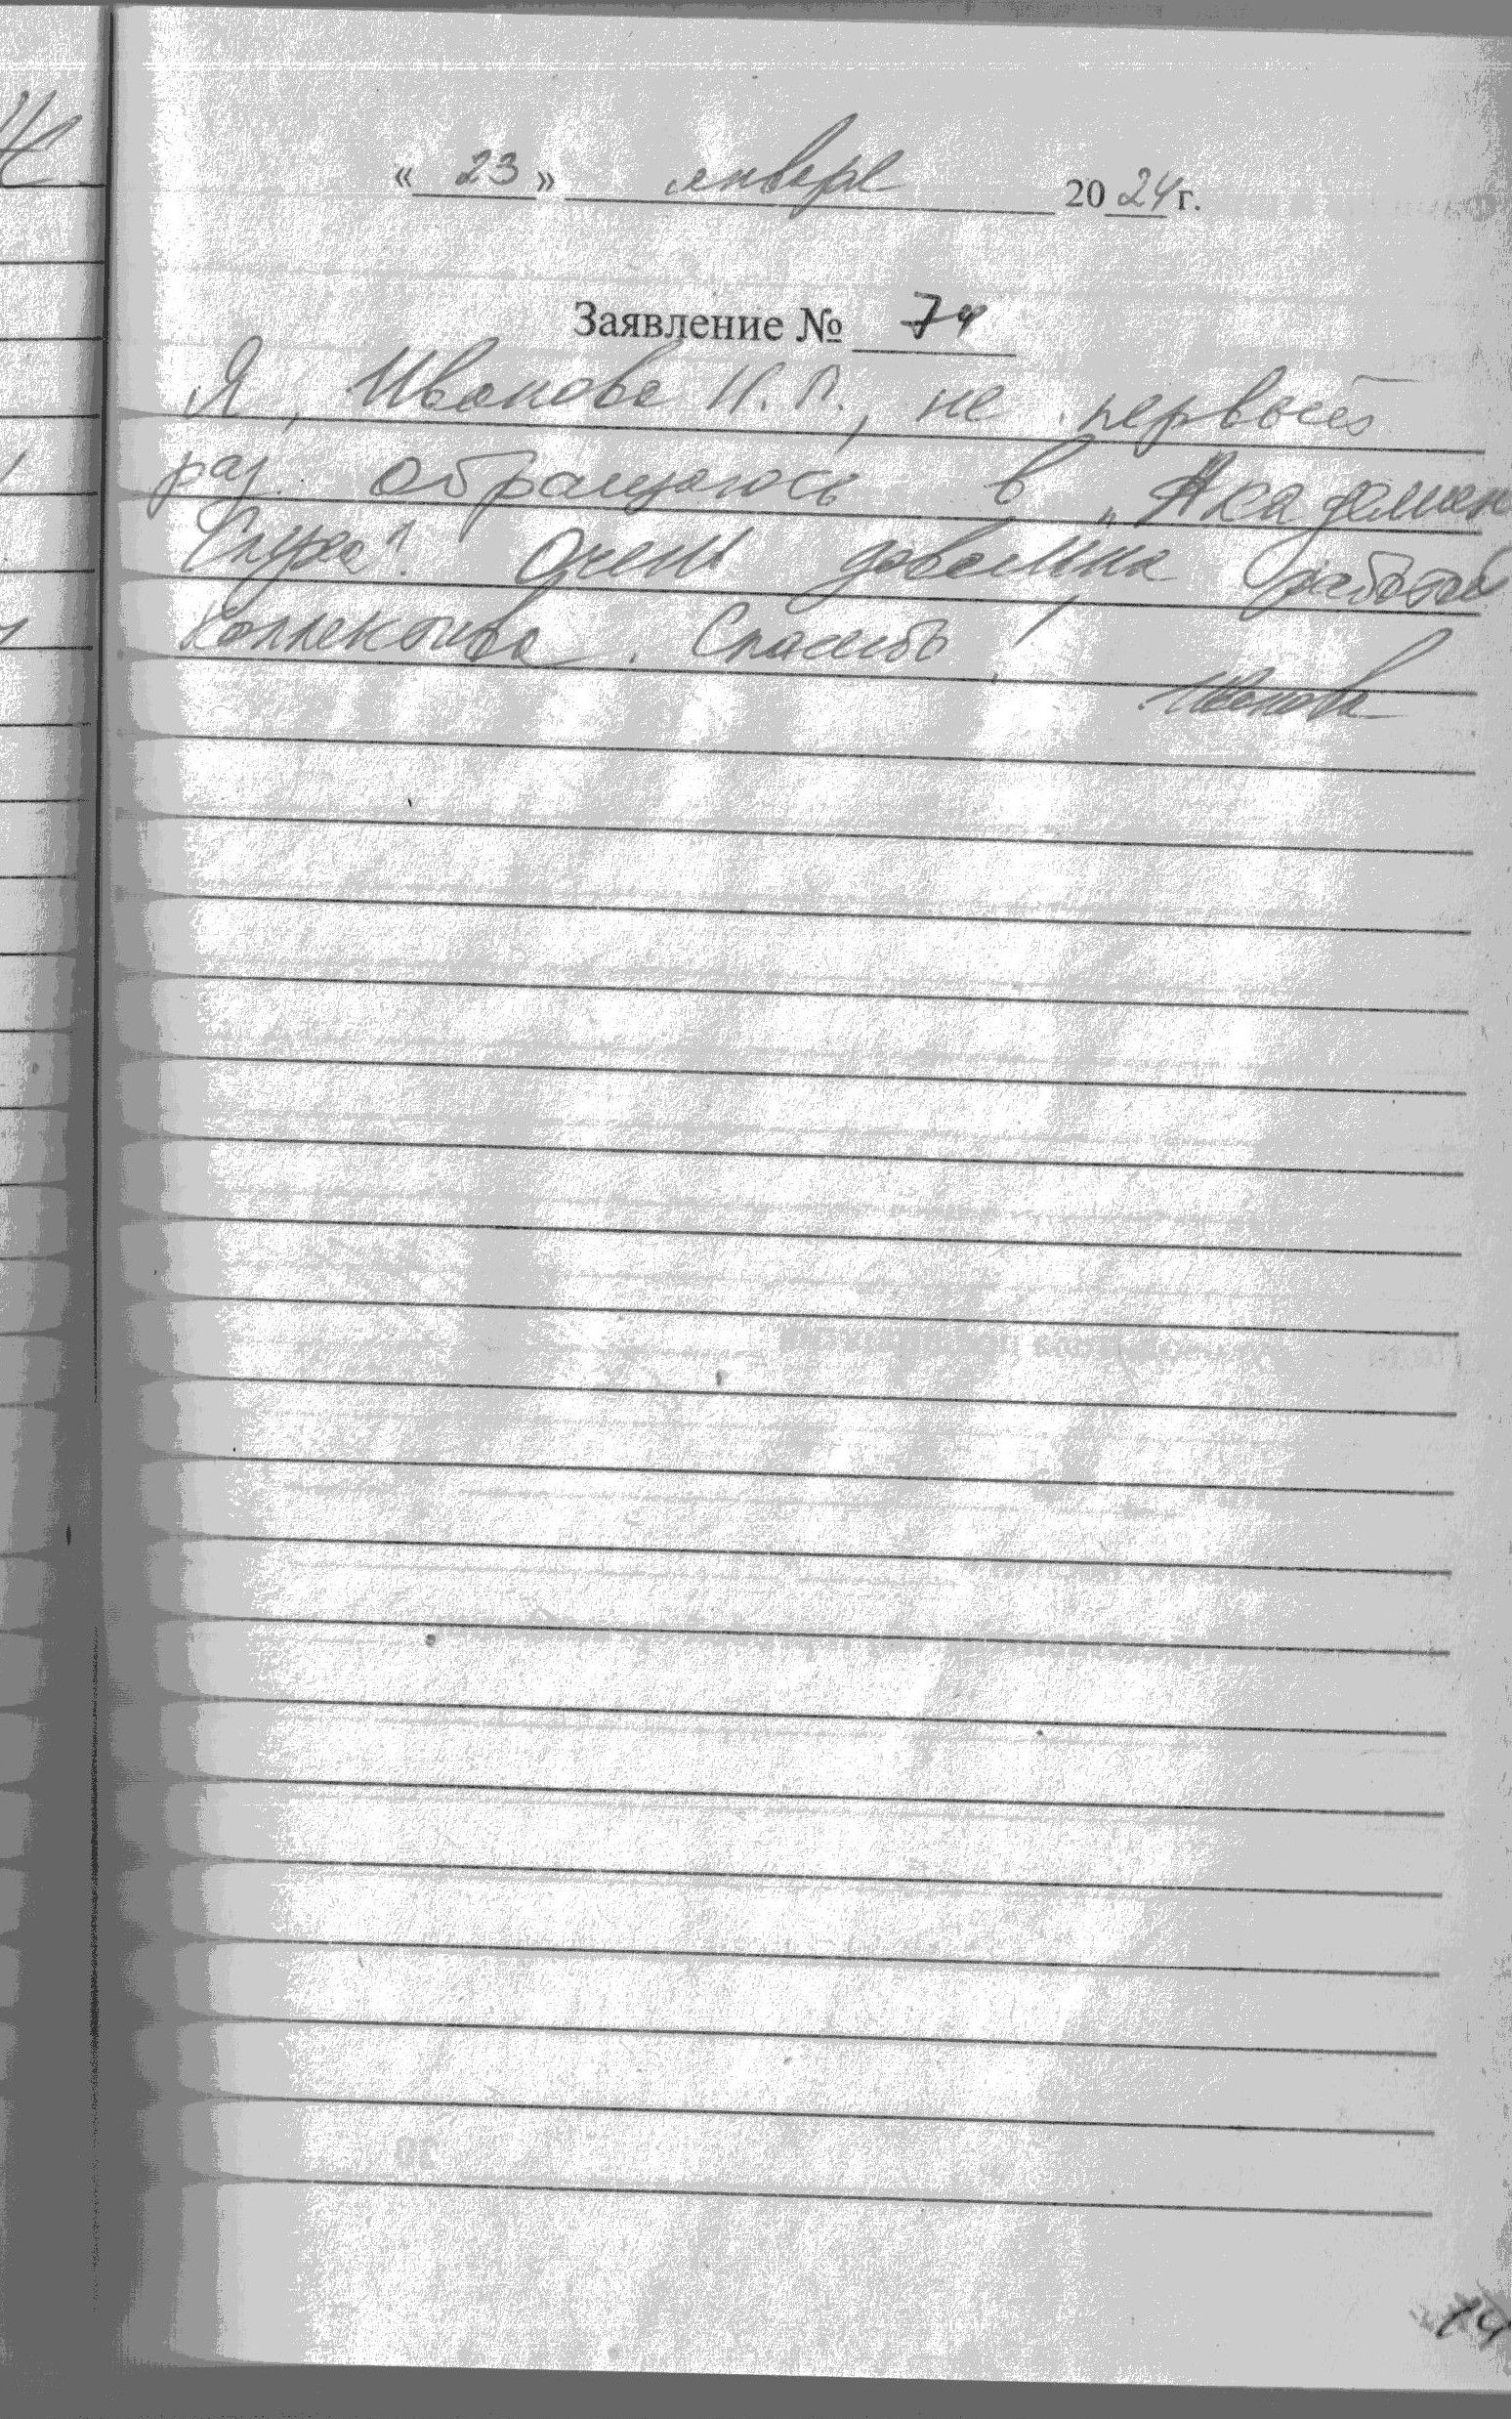 « 23 » января 2024 г.
Заявление № 74
Я, Иванова Н. П., не первый
раз обращаюсь в „Академию
Слуха". Очень довольна работой
коллектива. Спасибо!
Иванова
74